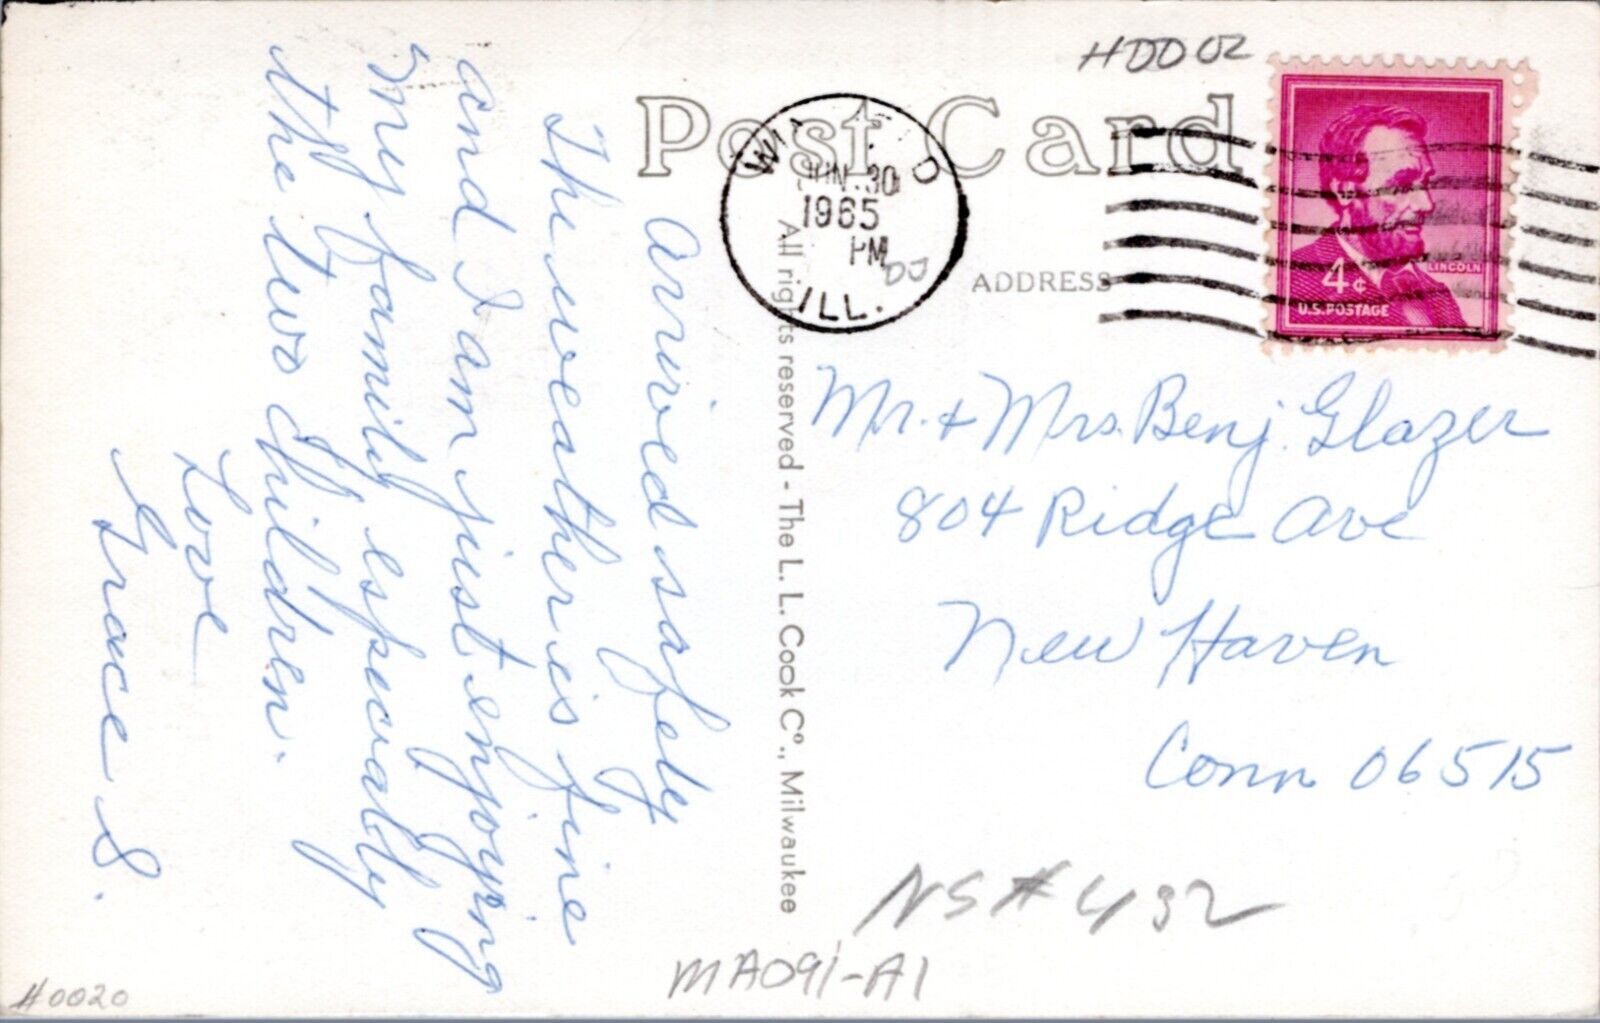 Arrived safely
The weather is fine
and I am just enjoying
my family especially
the two Children.
Love
Grace S.
Post Card
JUN 30
1965
PM
ILL.
ADDRESS
4¢
LINCOLN
U.S. POSTAGE
Mr. + Mrs. Benj. Glazer
804 Ridge Ave
New Haven
Conn 06515
All rights reserved - The L. L. Cook Co., Milwaukee
NS#432
MA091-A1
#0020